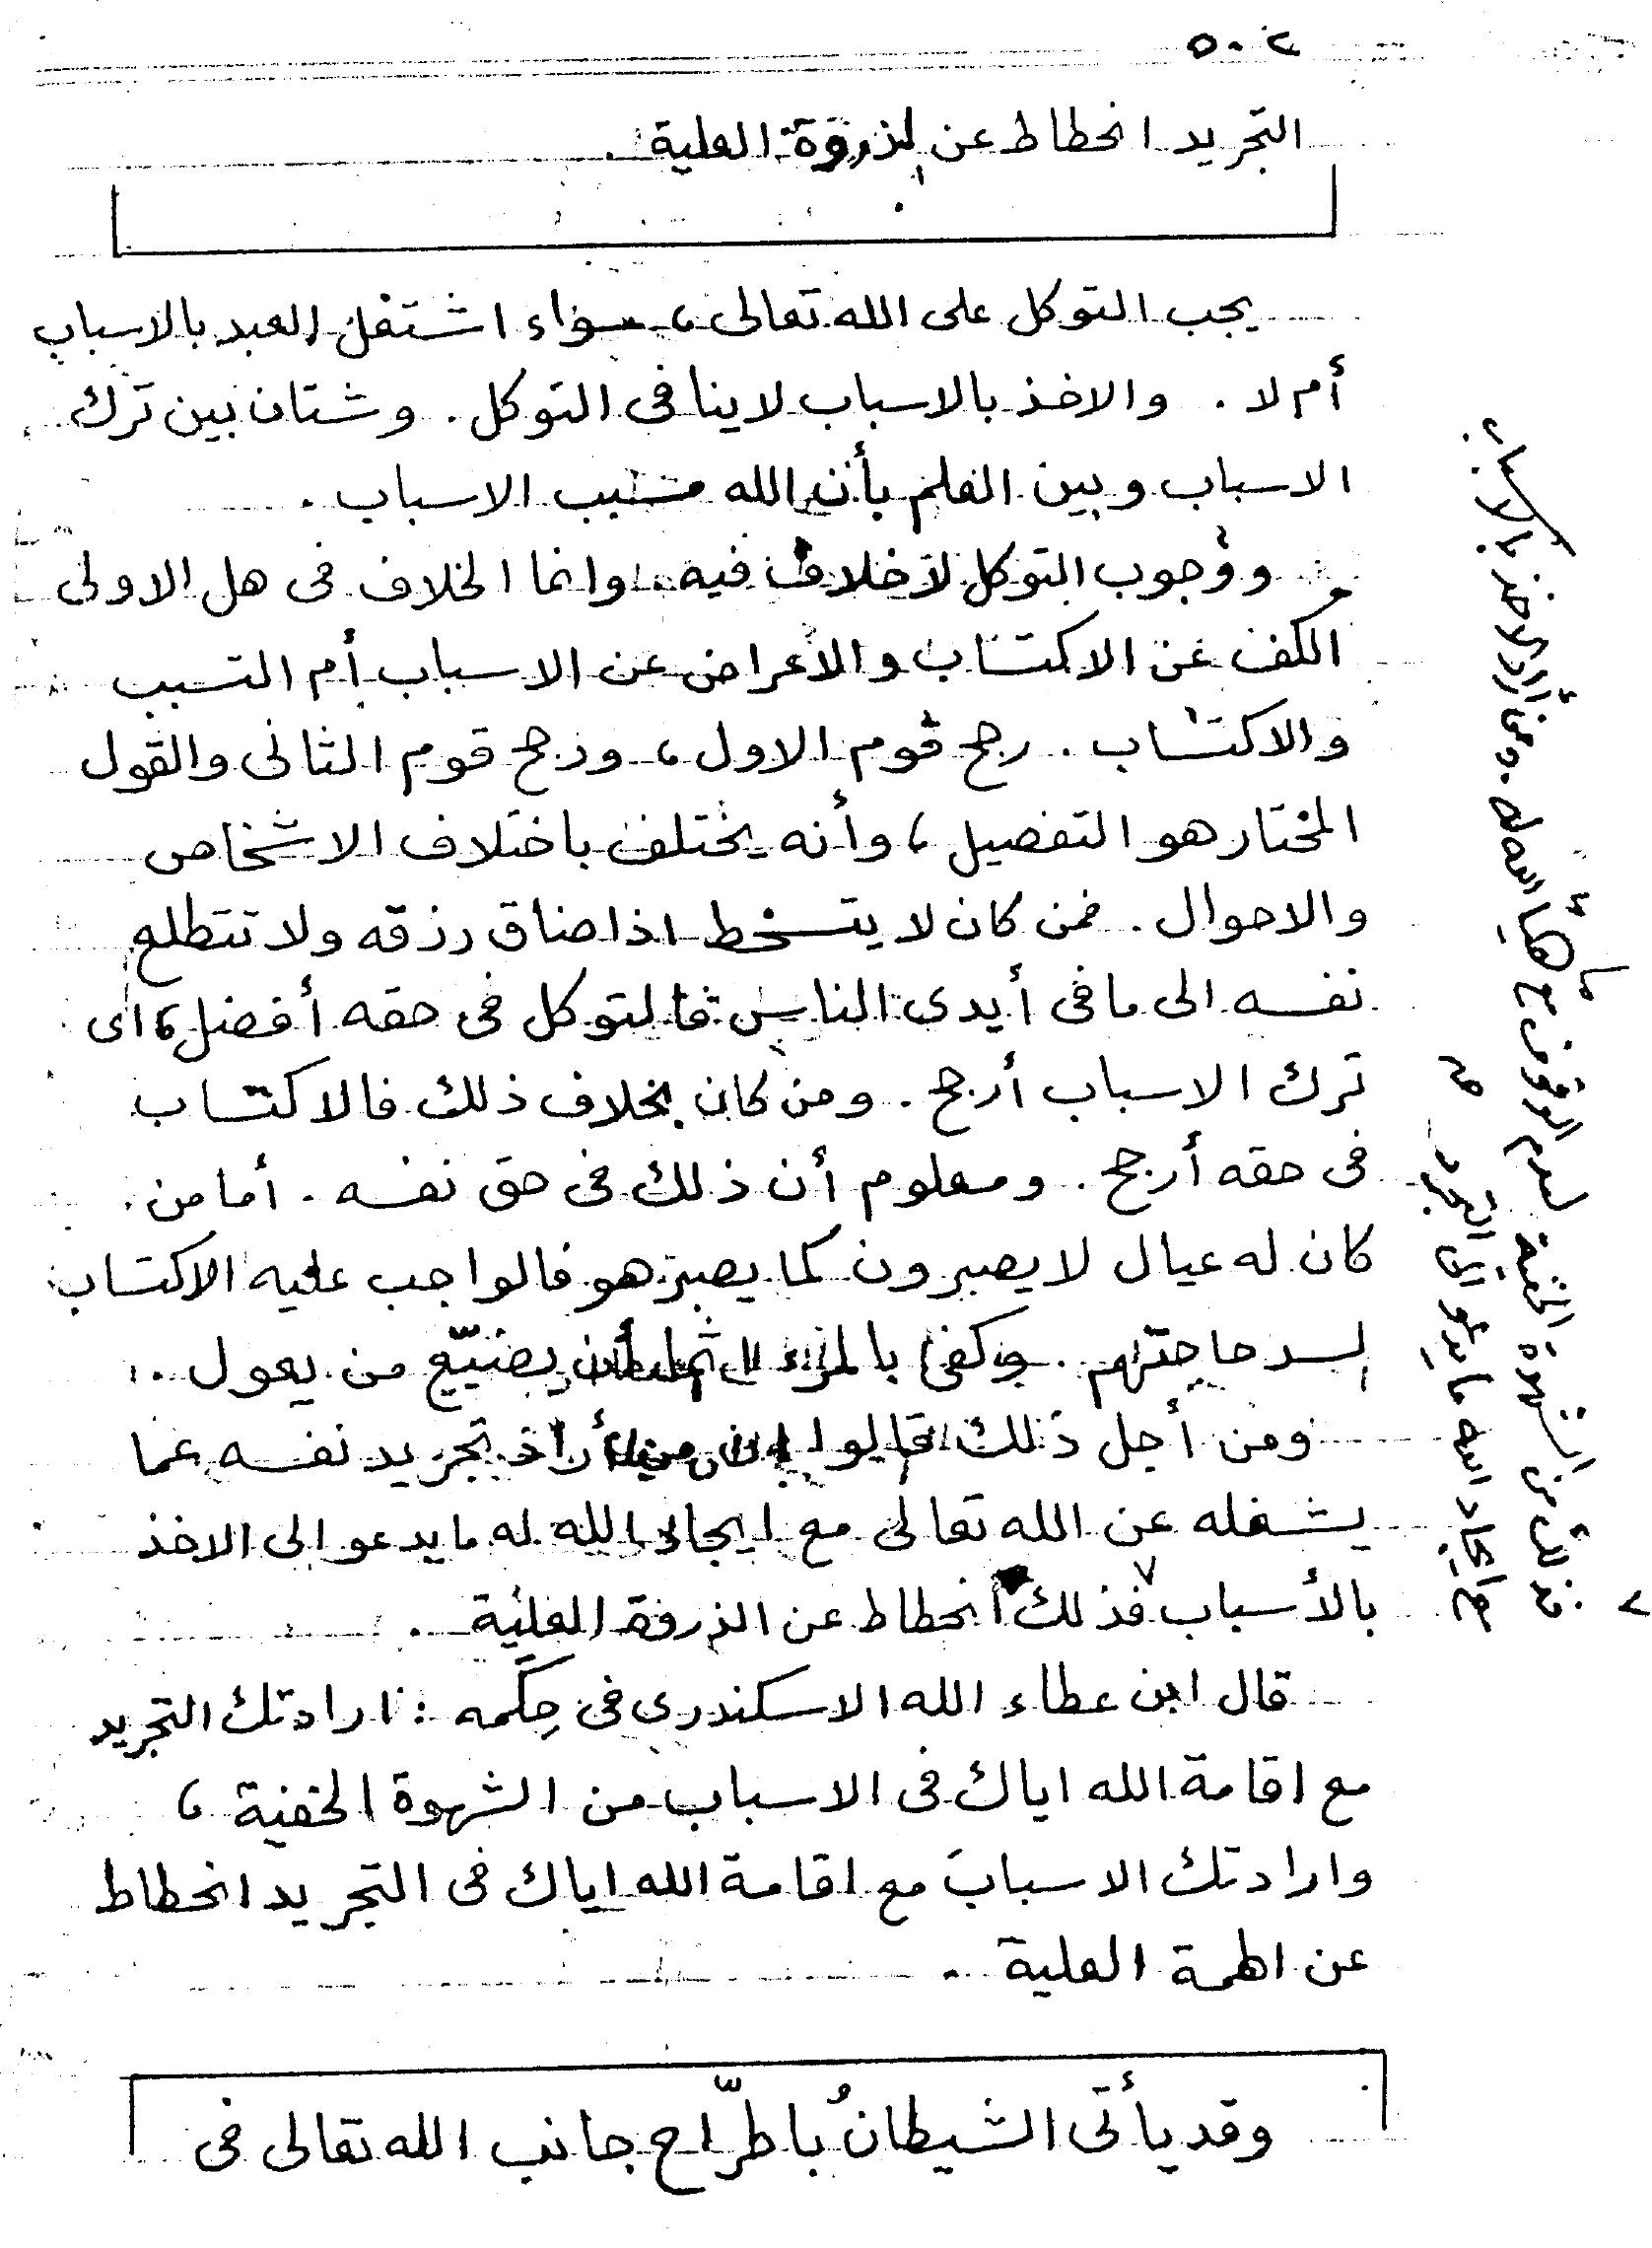 ٥٠٢
التجريد انحطاط عن الذروة العلية .
يجب التوكل على الله تعالى ، سواء اشتغل العبد بالاسباب
أم لا . والاخذ بالاسباب لا ينافى التوكل . وشتان بين ترك
الاسباب وبين العلم بأن الله مسبب الاسباب .
ووجوب التوكل لا خلاف فيه . وانما الخلاف فى هل الاولى
الكف عن الاكتساب والاعراض عن الاسباب أم التسبب
والاكتساب . رجح قوم الاول ، ورجح قوم الثانى والقول
المختار هو التفصيل ، وأنه يختلف باختلاف الاشخاص
والاحوال . فمن كان لا يتسخط اذا ضاق رزقه ولا تتطلع
نفسه الى ما فى أيدى الناس فالتوكل فى حقه أفضل ، اى
ترك الاسباب أرجح . ومن كان بخلاف ذلك فالاكتساب
فى حقه أرجح . ومعلوم أن ذلك فى حق نفسه . أما من
كان له عيال لا يصبرون كما يصبر هو فالواجب عليه الاكتساب
لسد حاجتهم . وكفى بالمرء اثما أن يضيّع من يعول .
ومن أجل ذلك قالوا إن من أراد تجريد نفسه عما
يشغله عن الله تعالى مع ايجاد الله له ما يدعو الى الاخذ
بالأسباب فذلك انحطاط عن الذروة العلية .
قال ابن عطاء الله الاسكندرى فى حِكَمه : ارادتك التجريد
مع اقامة الله اياك فى الاسباب من الشهوة الخفية ،
وارادتك الاسبابَ مع اقامة الله اياك فى التجريد انحطاط
عن الهمة العلية .
وقد يأتى الشيطانُ باطرّاح جانب الله تعالى فى
فذلك من الشهوة الخفية لعدم الوقوف مع ما هيأ الله له . ومن أراد الاخذ بالأسباب
مع ايجاد الله ما يدعو الى التجرد صح